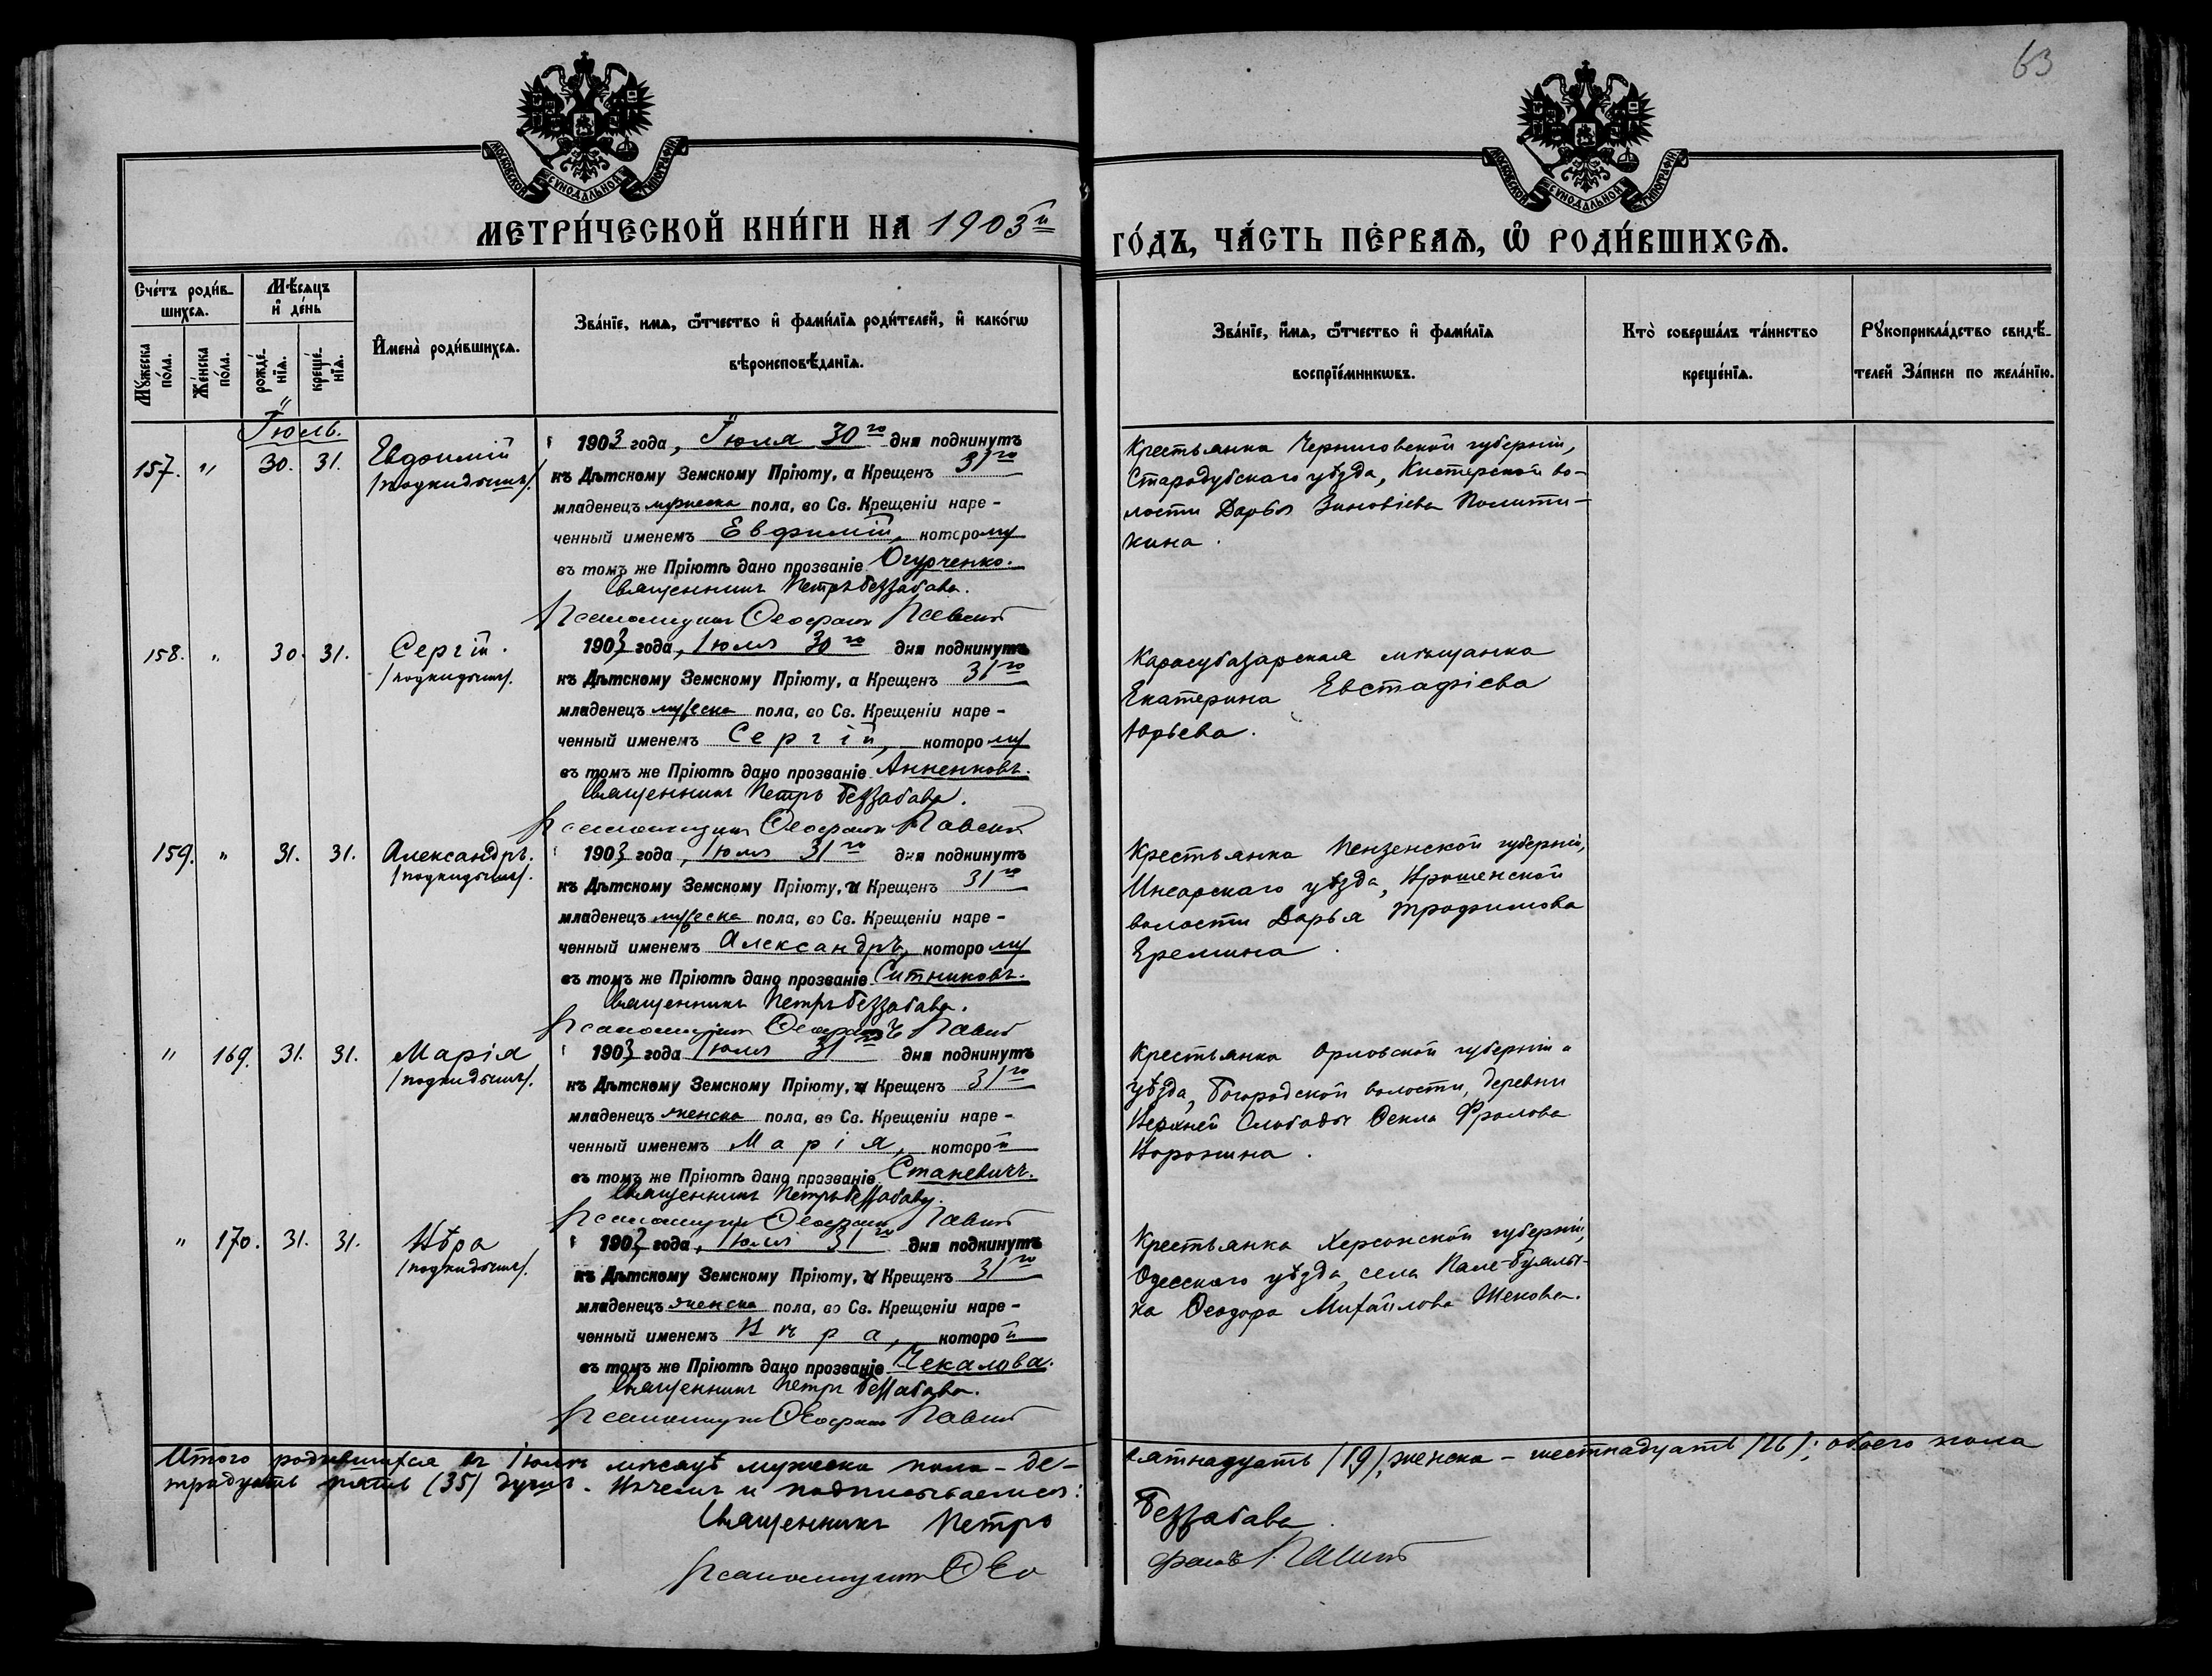 63
МОСКОВСКОЙ СѴНОДАЛЬНОЙ ТИПОГРАФІИ
МОСКОВСКОЙ СѴНОДАЛЬНОЙ ТИПОГРАФІИ
МЕТРИ́ЧЕСКОЙ КНИ́ГИ НА 1903й
ГО́ДЪ, ЧА́СТЬ ПЕ́РВАѦ, Ѽ РОДИ́ВШИХСѦ.
Сче́тъ роди́в-
шихсѧ.
Мѣ́сѧцъ
и҆ де́нь
Мꙋ́жеска по́ла.
Же́нска по́ла.
рожде́-нїѧ.
креще́-нїѧ.
И҆мена̀ роди́вшихсѧ.
Зва́нїе, имѧ, ѻ҆́тчество и҆ фами́лїѧ роди́телей, и҆ како́гѡ
вѣроисповѣ́данїѧ.
Зва́нїе, и҆́мѧ, ѻ҆́тчество и҆ фами́лїѧ
воспрїе́мникѡвъ.
Кто̀ соверша́лъ та́инство
креще́нїѧ.
Рꙋкоприкла́дство свидѣ́-
телей За́писи по жела́нїю.
Іюль.
157. " 30. 31. Евфимій
/подкидышъ/.
1903 года, Іюля 30го дня подкинутъ
къ Дѣтскому Земскому Пріюту, а Крещенъ 31го
младенецъ мужеска пола, во Св. Крещеніи наре-
ченный именемъ Евфимій, которому
въ томъ же Пріютѣ дано прозваніе Огурченко.
Священникъ Петръ Беззабава.
Псаломщикъ Ѳеофанъ
Крестьянка Черниговской губерніи,
Стародубскаго уѣзда, Кистерской во-
лости Дарья Зиновіева Полити-
кина.
158. " 30. 31. Сергій.
/подкидышъ/.
1903 года, Іюля 30го дня подкинутъ
къ Дѣтскому Земскому Пріюту, а Крещенъ 31го
младенецъ мужеска пола, во Св. Крещеніи наре-
ченный именемъ Сергій, которому
въ томъ же Пріютѣ дано прозваніе Анненковъ.
Священникъ Петръ Беззабава.
Псаломщикъ Ѳеофанъ
Карасубазарская мѣщанка
Екатерина Евстафіева
Юрьева.
159. " 31. 31. Александръ.
/подкидышъ/.
1903 года, Іюля 31го дня подкинутъ
къ Дѣтскому Земскому Пріюту, а Крещенъ 31го
младенецъ мужеска пола, во Св. Крещеніи наре-
ченный именемъ Александръ, которому
въ томъ же Пріютѣ дано прозваніе Ситниковъ.
Священникъ Петръ Беззабава.
Псаломщикъ Ѳеофанъ
Крестьянка Пензенской губерніи,
Инсарскаго уѣзда,
волости Дарья Трофимова
Еремина.
" 169. 31. 31. Марія
/подкидышъ/.
1903 года Іюля 31го дня подкинутъ
къ Дѣтскому Земскому Пріюту, а Крещенъ 31го
младенецъ женска пола, во Св. Крещеніи наре-
ченный именемъ Марія, которой
въ томъ же Пріютѣ дано прозваніе Станевичъ.
Священникъ Петръ Беззабава.
Псаломщикъ Ѳеофанъ
Крестьянка Орловской губерніи и
уѣзда, Богородской волости, деревни
Верхней Слободы Ѳекла Фролова
Воронина.
" 170. 31. 31. Вѣра
/подкидышъ/.
1903 года, Іюля 31го дня подкинутъ
къ Дѣтскому Земскому Пріюту, а Крещенъ 31го
младенецъ женска пола, во Св. Крещеніи наре-
ченный именемъ Вѣра, которой
въ томъ же Пріютѣ дано прозваніе Чекалова.
Священникъ Петръ Беззабава.
Псаломщикъ Ѳеофанъ
Крестьянка Херсонской губерніи,
Одесскаго уѣзда, села
Ѳеодора Михайлова
Итого родившихся въ Іюлѣ мѣсяцѣ мужеска пола - де-
вятнадцать /19/, женска - шестнадцать /16/; обоего пола
тридцать пять (35) душъ. Въ чемъ и подписываемся:
Священникъ Петръ
Беззабава
Псаломщикъ Ѳео
фанъ